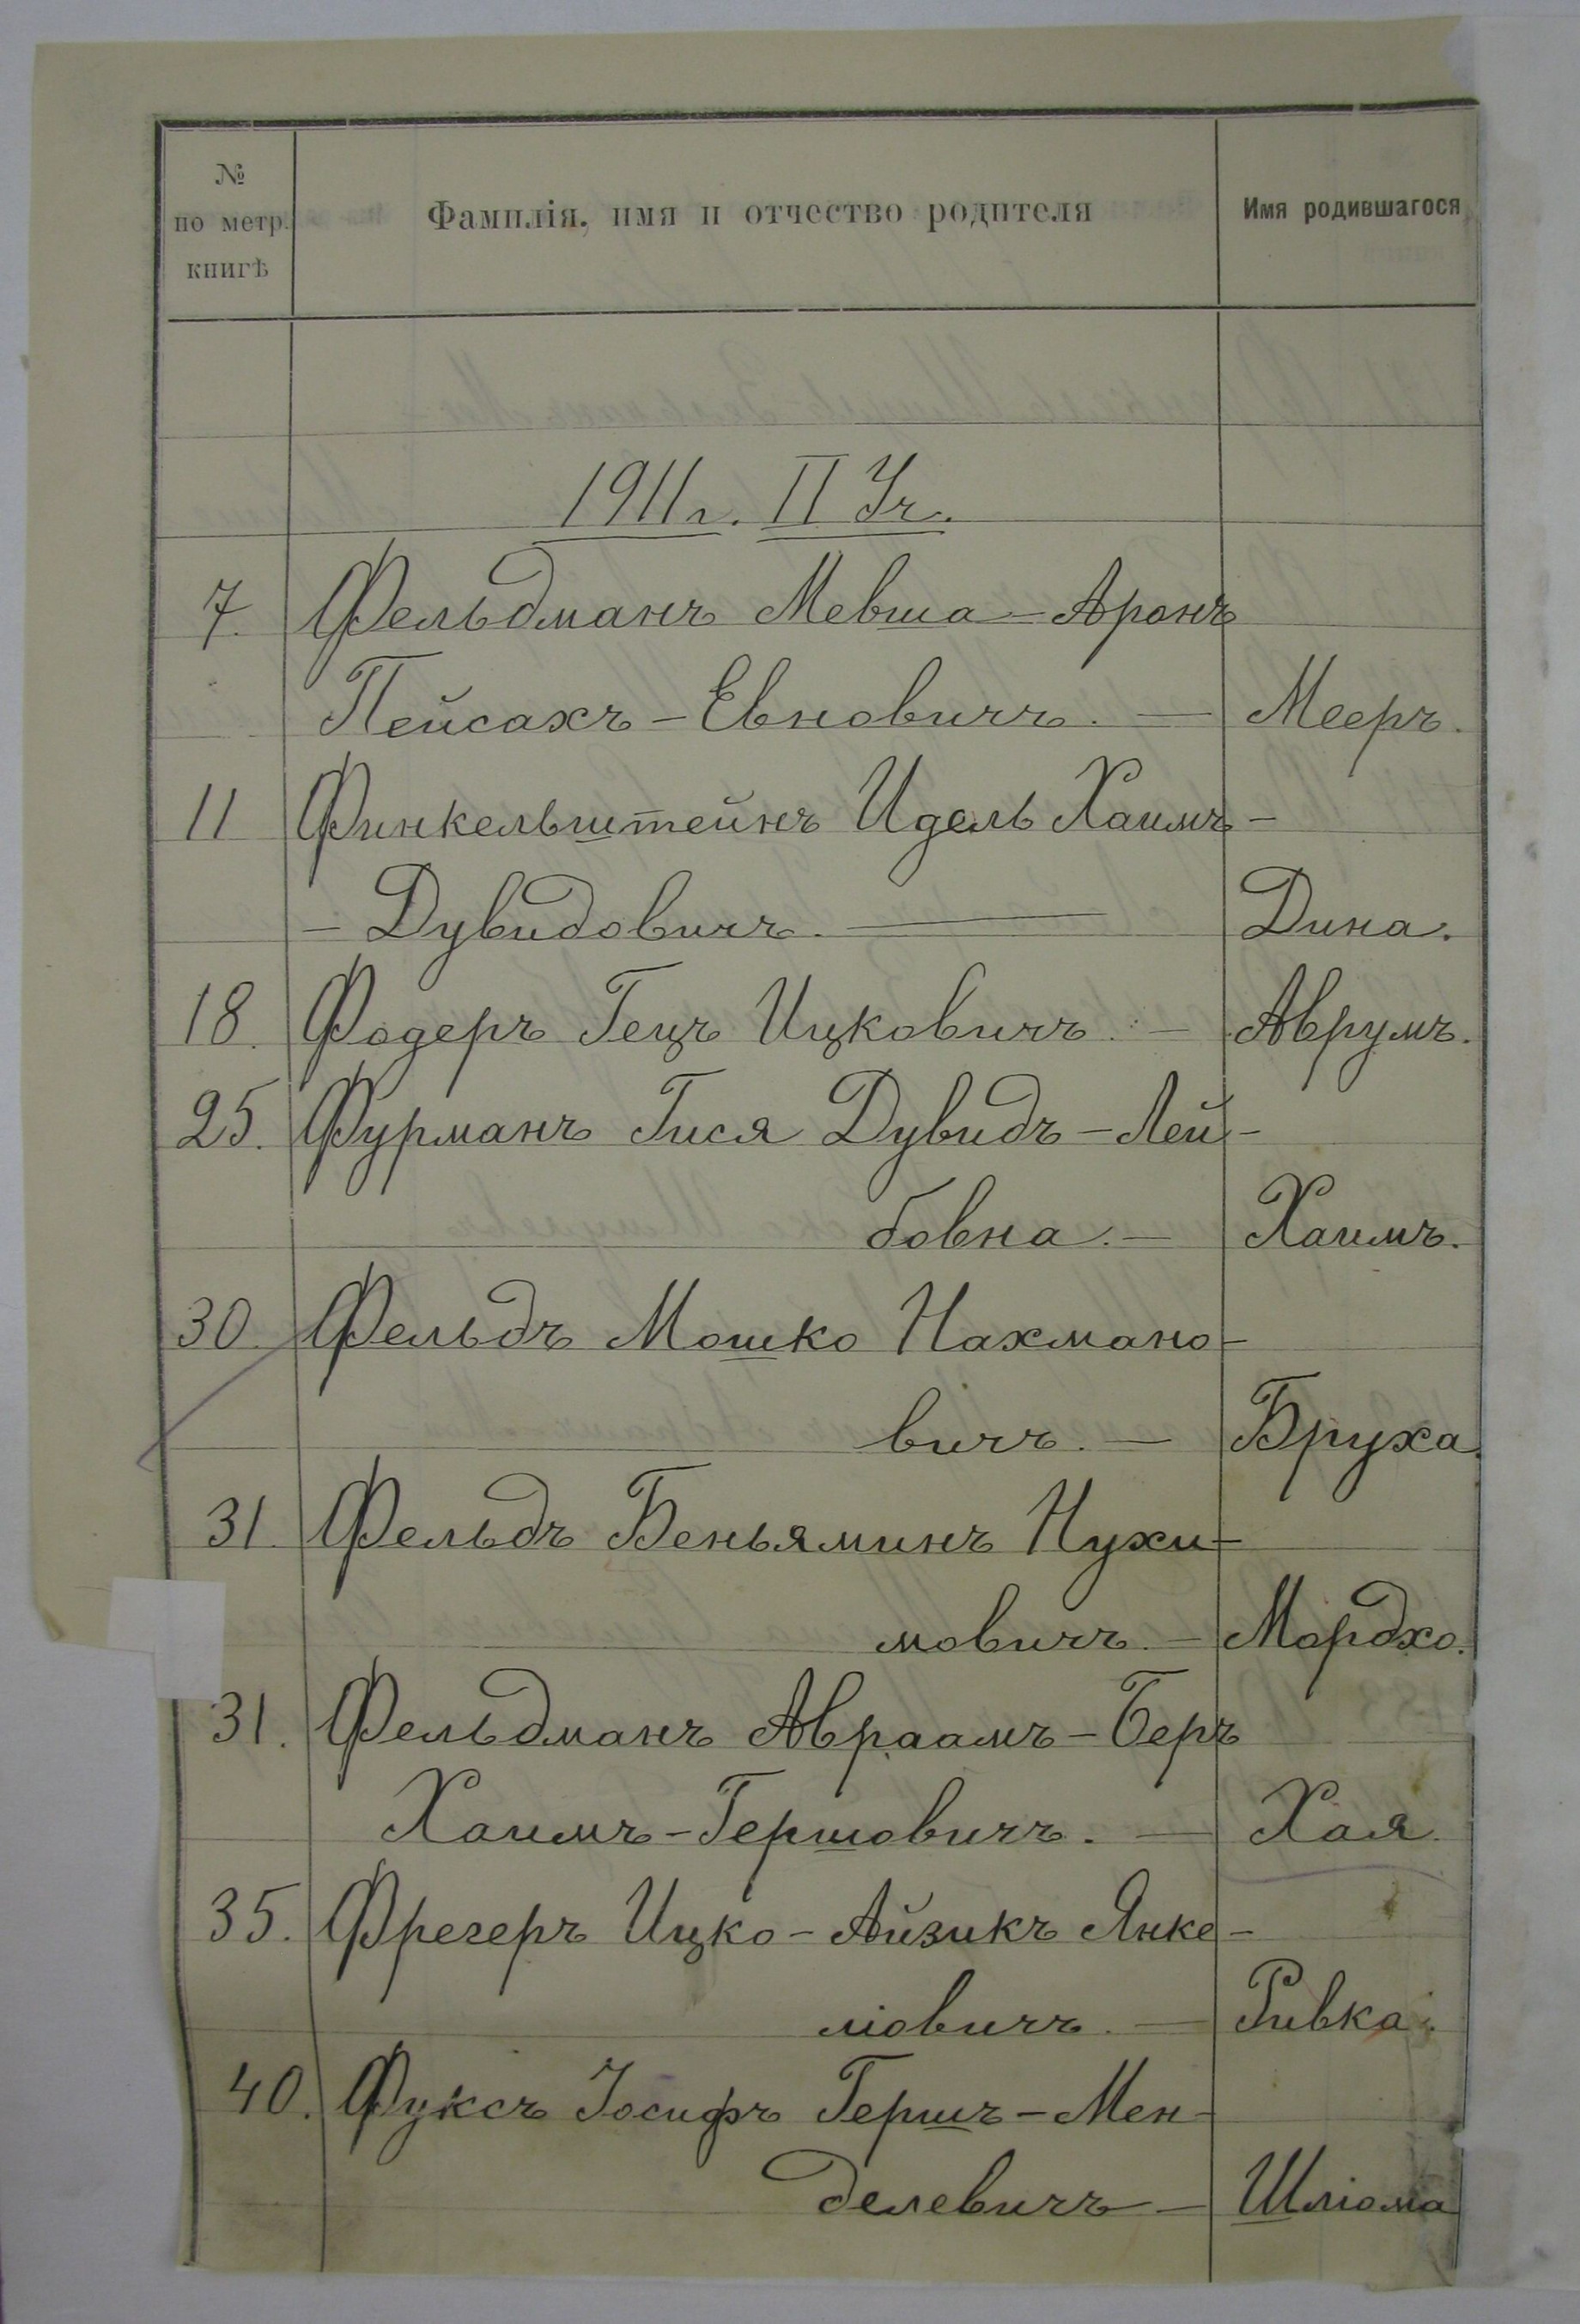 №
по метр.
книгѣ
Фамилія, имя и отчество родителя
Имя родившагося
1911г. II Уч.
7. Фельдманъ Мевша-Аронъ
Пейсахъ-Евновичъ. — Мееръ.
11 Финкельштейнъ Идель Хаимъ-
-Дувидовичъ. — Дина.
18. Фодеръ Гецъ Ицковичъ. — Аврумъ.
25. Фурманъ Гися Дувидъ-Лей-
бовна. — Хаимъ.
30. Фельдъ Мошко Нахмано-
вичъ. — Бруха.
31. Фельдъ Беньяминъ Нухи-
мовичъ. — Мордхо.
31. Фельдманъ Авраамъ-Беръ
Хаимъ-Гершовичъ. — Хая.
35. Фрегеръ Ицко-Айзикъ Янке-
ліовичъ. — Ривка.
40. Фуксъ Іосифъ Гершъ-Мен-
делевичъ — Шліома